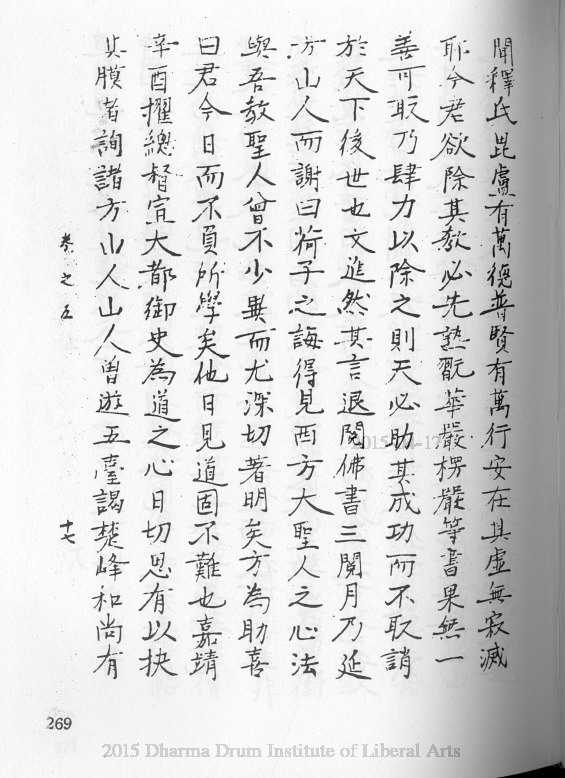 聞釋氏毘盧有萬德普賢有萬行安在其虛無寂滅
耶今君欲除其教必先熟翫華嚴楞嚴等書果無一
善可取乃肆力以除之則天必助其成功而不取誚
於天下後世也文進然其言退閱佛書三閱月乃延
方山人而謝曰荷子之誨得見西方大聖人之心法
與吾教聖人曾不少異而尤深切著明矣方為助喜
曰君今日而不負所學矣他日見道固不難也嘉靖
辛酉擢總督宣大都御史為道之心日切思有以抉
其膜者詢諸方山人山人曾遊五臺謁楚峰和尚有
卷之五
十七
269
2015 Dharma Drum Institute of Liberal Arts